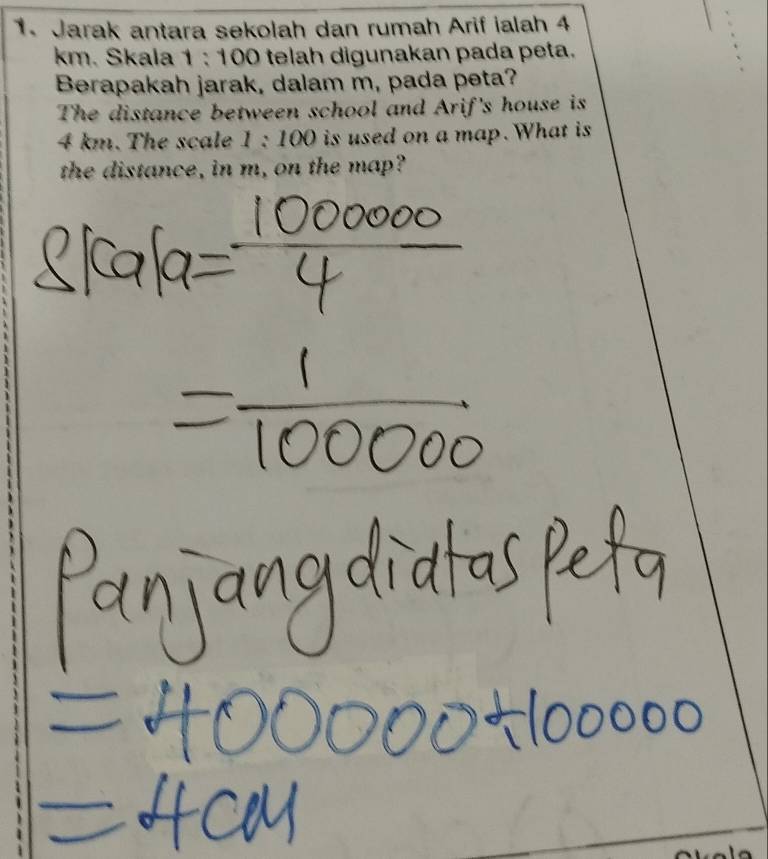 1. Jarak antara sekolah dan rumah Arif ialah 4
km. Skala 1 : 100 telah digunakan pada peta.
Berapakah jarak, dalam m, pada peta?
The distance between school and Arif's house is
4 km. The scale 1 : 100 is used on a map. What is
the distance, in m, on the map?
Skala = 1000000 / 4
= 1 / 100000
Panjang diatas Peta
= 400000 ÷ 100000
= 4 cm